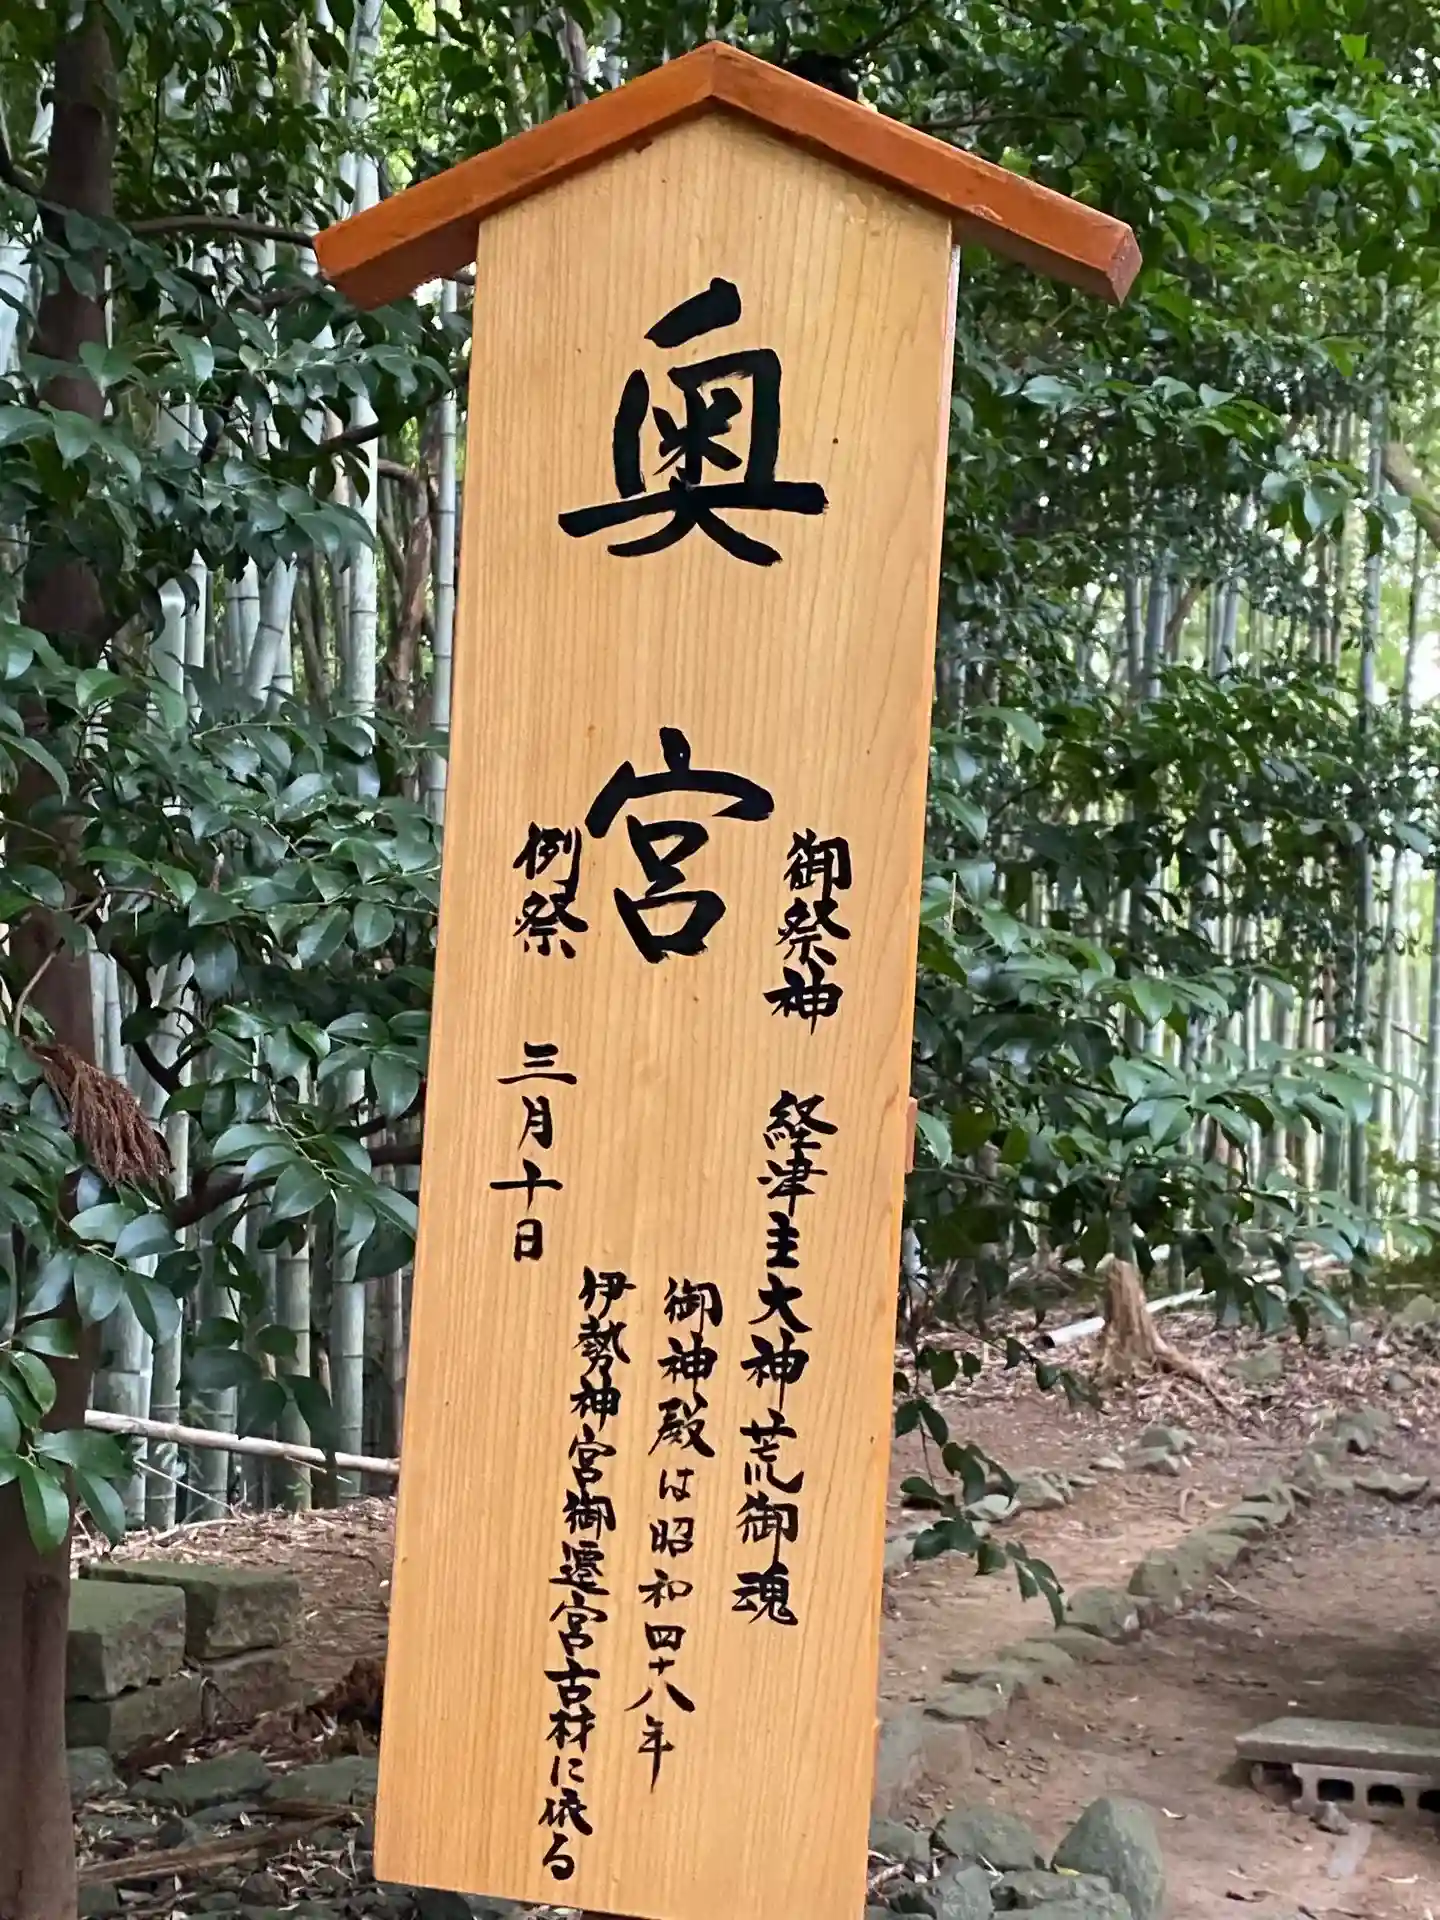 奥宮
御祭神 経津主大神荒御魂
御神殿は昭和四十八年
伊勢神宮御遷宮古材に依る
例祭 三月十日